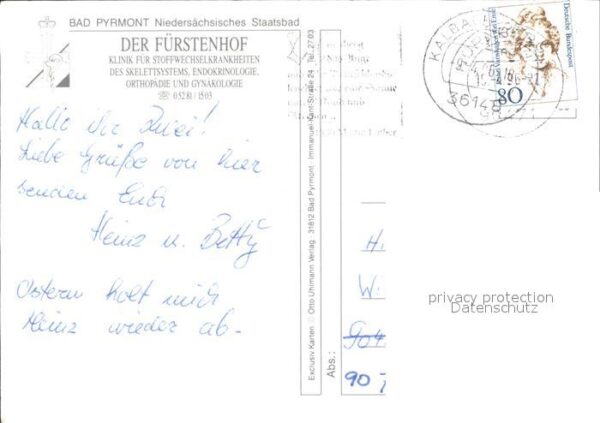 BAD PYRMONT Niedersächsisches Staatsbad
DER FÜRSTENHOF
KLINIK FÜR STOFFWECHSELKRANKHEITEN
DES SKELETTSYSTEMS, ENDOKRINOLOGIE,
ORTHOPÄDIE UND GYNÄKOLOGIE
☏ 05281 / 1503
Hallo ihr Zwei!
Liebe Grüße von hier
senden Euch
Heinz u. Betty
Ostern holt mich
Heinz wieder ab-
Exclusiv Karten © Otto Uhlmann Verlag, 31812 Bad Pyrmont, Immanuel-Kant-Straße 24, Tel. 27 03
Abs.:
Deutsche Bundespost
80
36148
H
W
904
90
privacy protection
Datenschutz